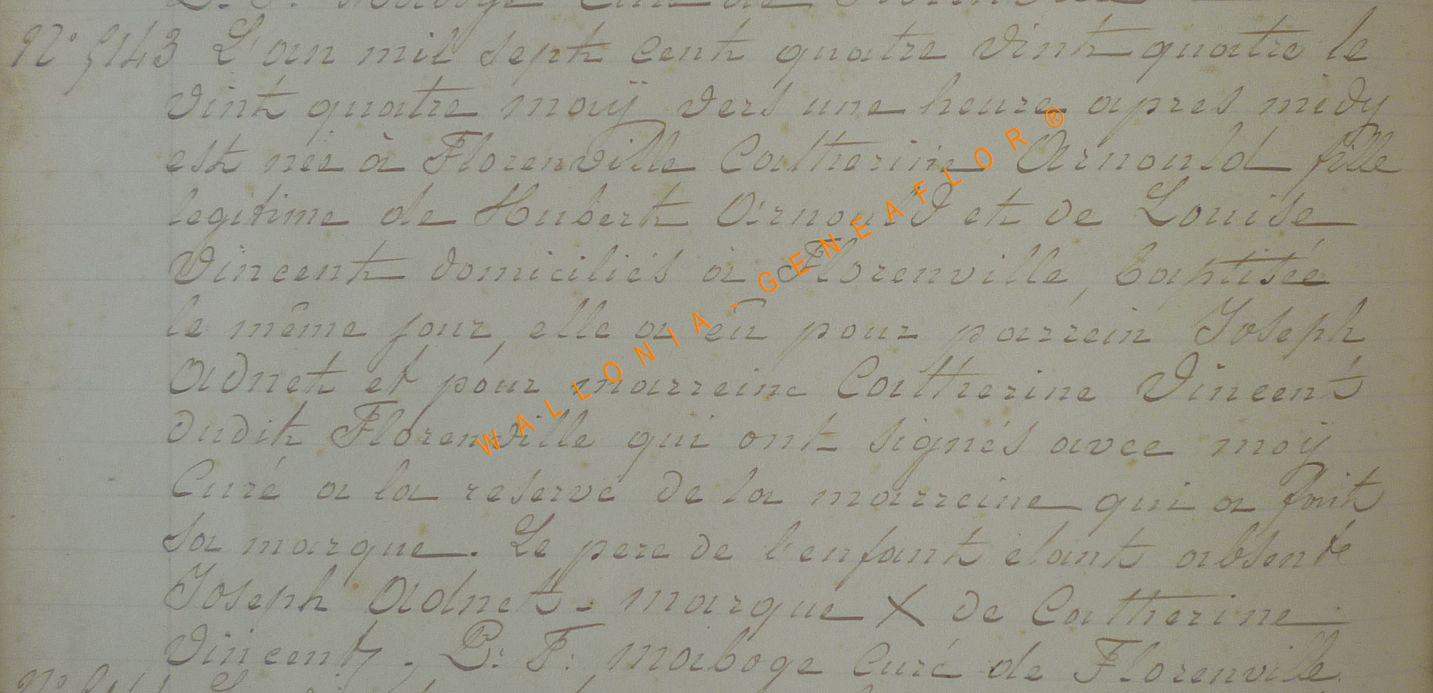 B. F. Maboge Curé de Florenville
N° 5143 L'an mil sept cent quatre vint quatre le
vint quatre maÿ vers une heure apres midy
est née à Florenville Catherine Arnould fille
legitime de Hubert Arnould et de Louise
Vincent domiciliés a Florenville, baptisée
le même jour, elle a eû pour parrein Joseph
Adnet et pour marreine Catherine Vincent
dudit Florenville qui ont signés avec moÿ
Curé a la reserve de la marreine qui a fait
sa marque. Le pere de l'enfant etant absent
Joseph Adnet - marque X de Catherine
Vincent. B: F: Maboge Curé de Florenville
WALLONIA - GENEAFLOR ®